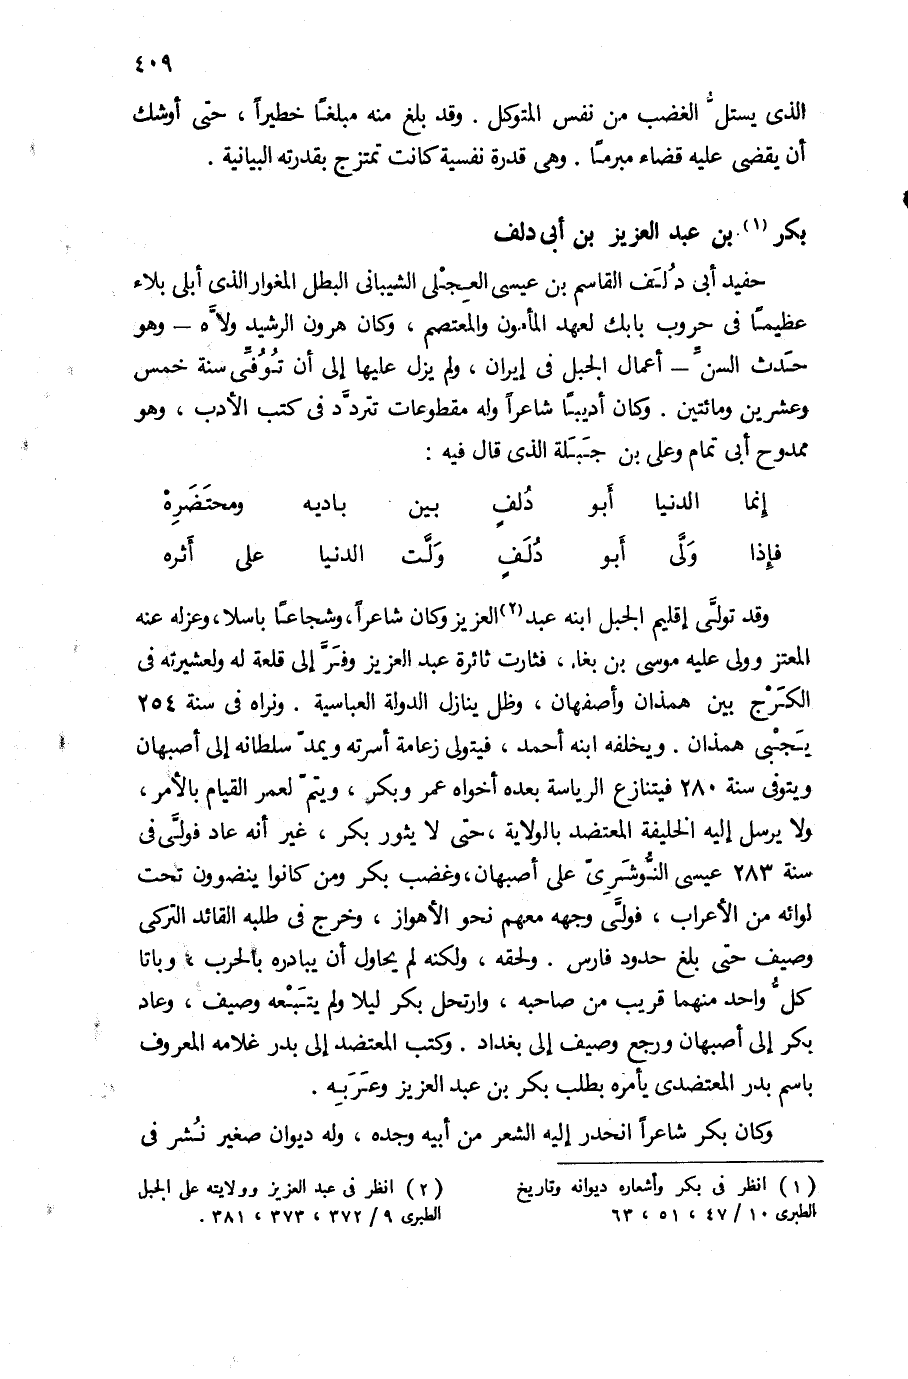 ٤٠٩
الذى يستلُّ الغضب من نفس المتوكل . وقد بلغ منه مبلغًا خطيراً ، حتى أوشك
أن يقضى عليه قضاء مبرمًا . وهى قدرة نفسية كانت تمتزج بقدرته البيانية .
بكر (١) بن عبد العزيز بن أبى دلف
حفيد أبى دُلَف القاسم بن عيسى العِجْلى الشيبانى البطل المغوار الذى أبلى بلاء
عظيمًا فى حروب بابك لعهد المأمون والمعتصم ، وكان هرون الرشيد ولاَّه – وهو
حَدث السنِّ – أعمال الجبل فى إيران ، ولم يزل عليها إلى أن تُوُفِّى سنة خمس
وعشرين ومائتين . وكان أديبًا شاعراً وله مقطوعات تتردَّد فى كتب الأدب ، وهو
ممدوح أبى تمام وعلى بن جَبَلة الذى قال فيه :
إنما الدنيا أَبو دُلفٍ بين باديه ومحتَضَرِهْ
فإِذا وَلَّى أَبو دُلَفٍ وَلَّت الدنيا على أَثره
وقد تولَّى إقليم الجبل ابنه عبد (٢) العزيز وكان شاعراً، وشجاعًا باسلا، وعزله عنه
المعتز وولى عليه موسى بن بغا، ، فثارت ثائرة عبد العزيز وفرَّ إلى قلعة له ولعشيرته فى
الكَرْج بين همذان وأصفهان ، وظل ينازل الدولة العباسية . ونراه فى سنة ٢٥٤
يَجْبى همذان . ويخلفه ابنه أحمد ، فيتولى زعامة أسرته ويمدّ سلطانه إلى أصبهان
ويتوفى سنة ٢٨٠ فيتنازع الرياسة بعده أخواه عمر وبكر ، ويتمّ لعمر القيام بالأمر ،
ولا يرسل إليه الخليفة المعتضد بالولاية ، حتى لا يثور بكر ، غير أنه عاد فولَّى فى
سنة ٢٨٣ عيسى النُّوشَرِىّ على أصبهان، وغضب بكر ومن كانوا ينضوون تحت
لوائه من الأعراب ، فولَّى وجهه معهم نحو الأهواز ، وخرج فى طلبه القائد التركى
وصيف حتى بلغ حدود فارس . ولحقه ، ولكنه لم يحاول أن يبادره بالحرب ، وباتا
كلُّ واحد منهما قريب من صاحبه ، وارتحل بكر ليلا ولم يتَبْعه وصيف ، وعاد
بكر إلى أصبهان ورجع وصيف إلى بغداد . وكتب المعتضد إلى بدر غلامه المعروف
باسم بدر المعتضدى يأمره بطلب بكر بن عبد العزيز وعَرَبِه .
وكان بكر شاعراً انحدر إليه الشعر من أبيه وجده ، وله ديوان صغير نُشر فى
(١) انظر فى بكر وأشعاره ديوانه وتاريخ
الطبرى ١٠ / ٤٧ ، ٥١ ، ٦٣
(٢) انظر فى عبد العزيز وولايته على الجبل
الطبرى ٩ / ٣٧٢ ، ٣٧٣ ، ٣٨١ .